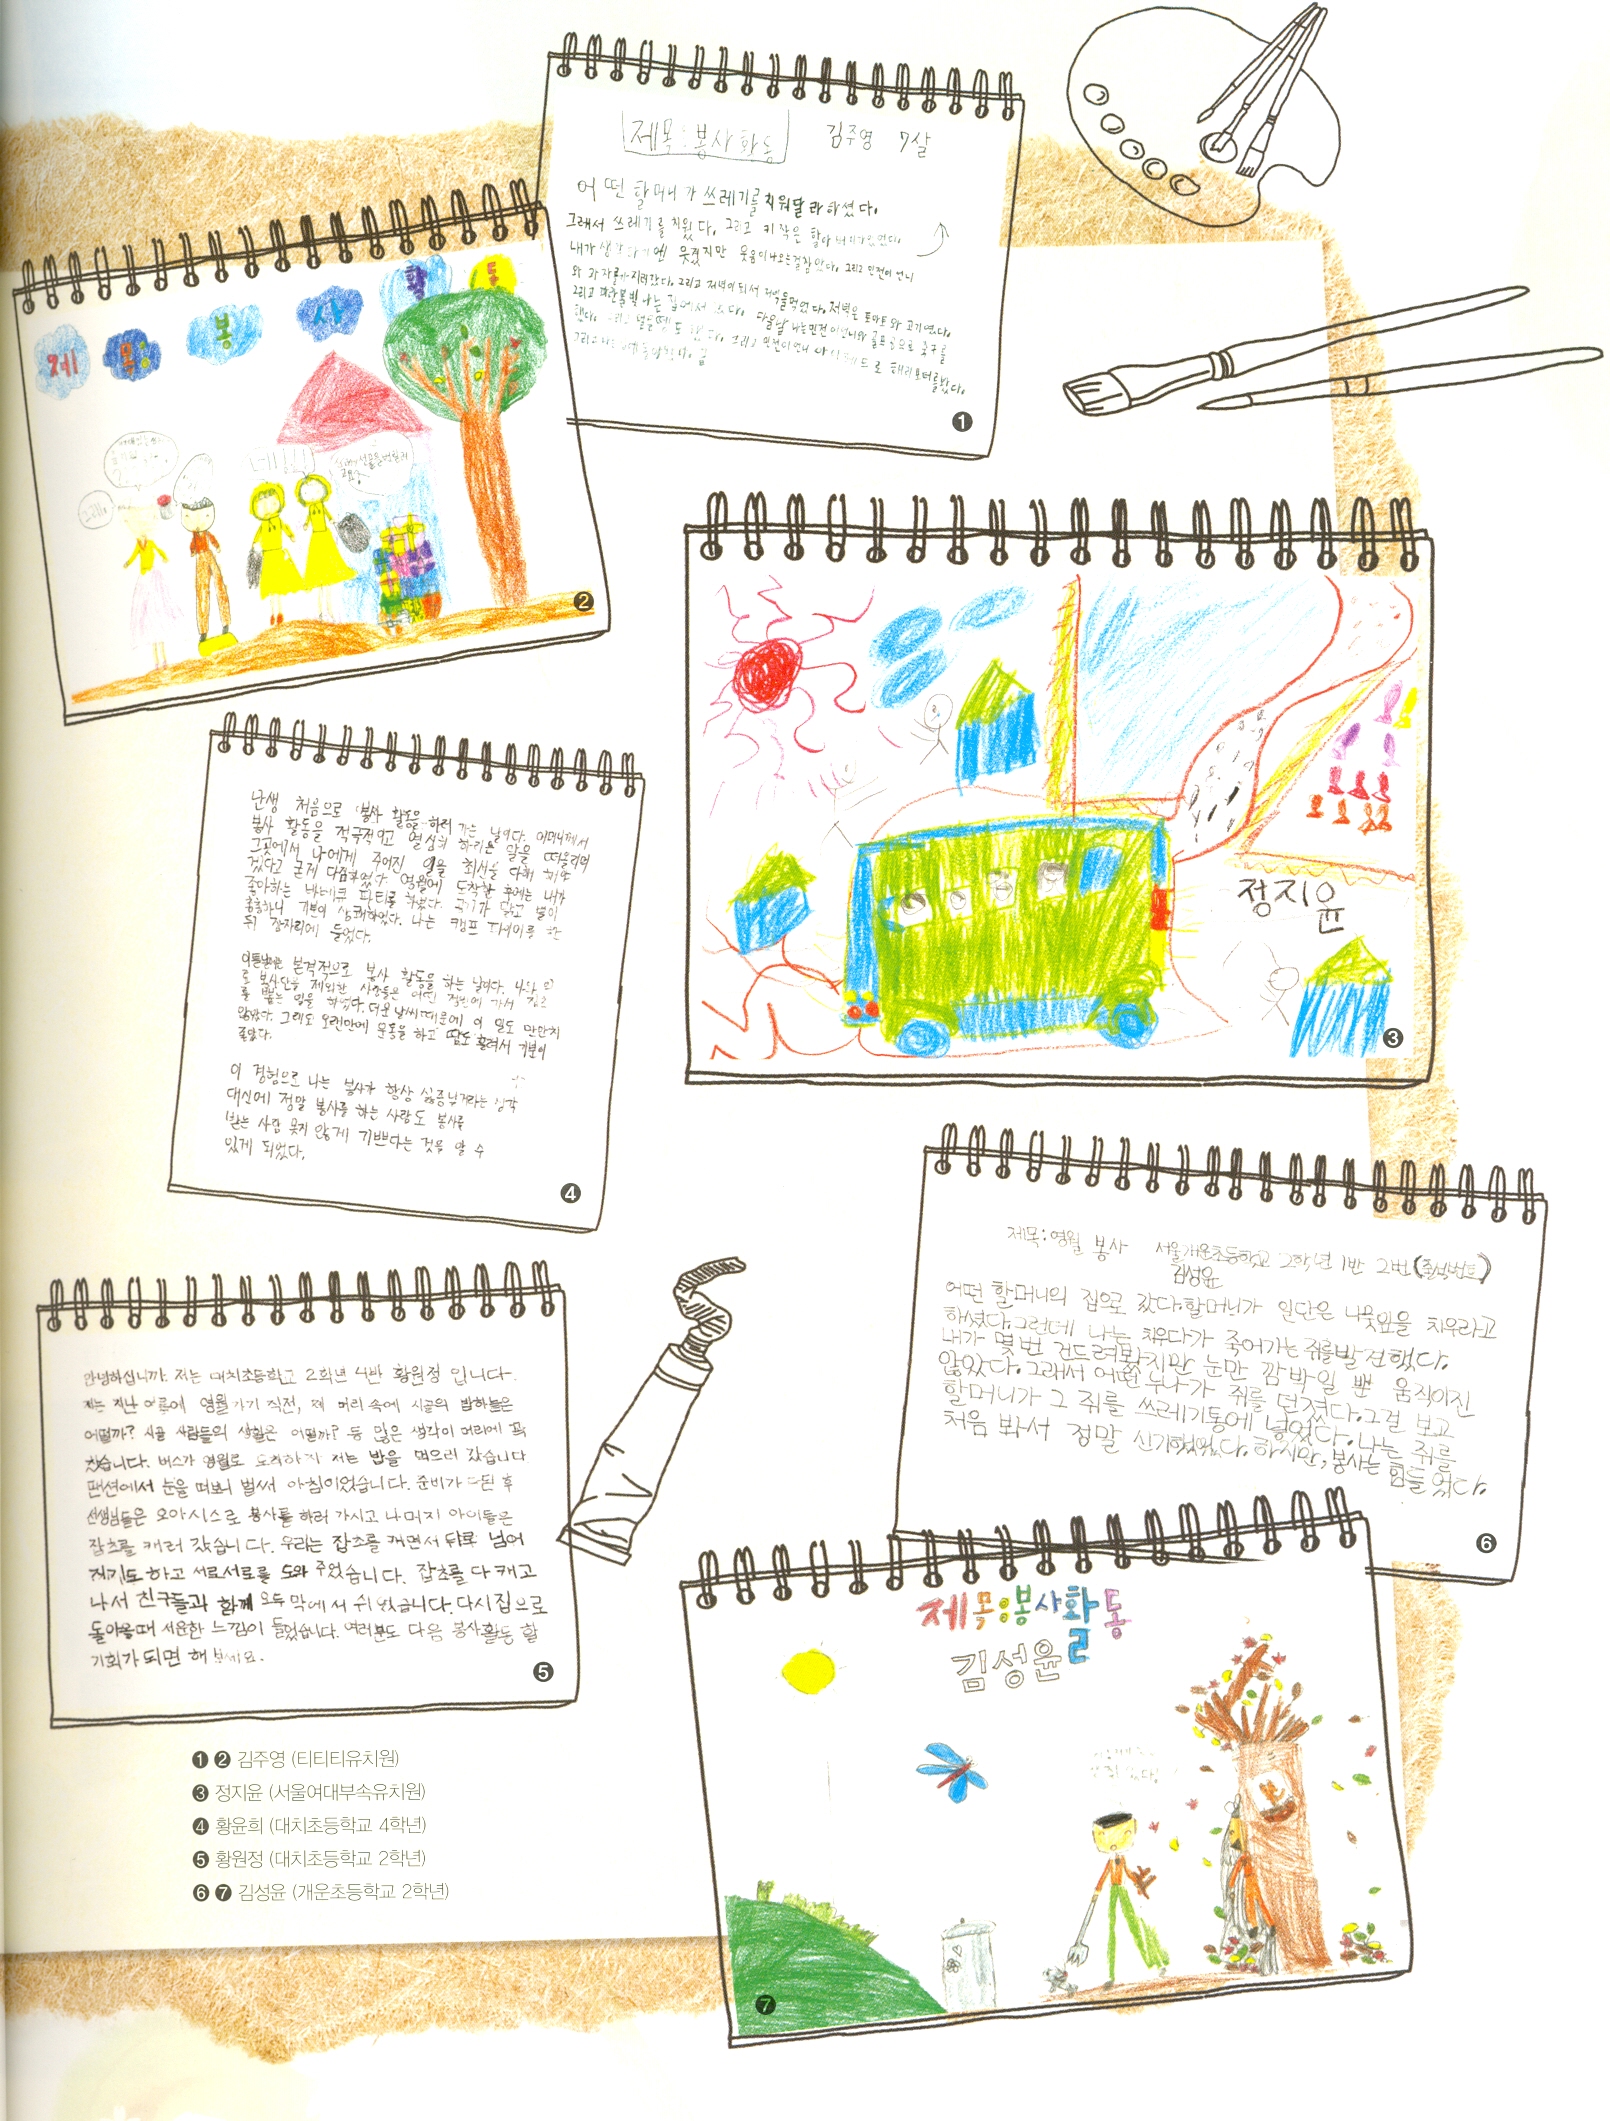 제목:봉사활동 김주영 7살
어떤 할머니가 쓰레기를 치워달라하셨다.
그래서 쓰레기를 치웠다. 그리고 키 작은 할아버지가있었다.
내가 생각하기엔 웃겼지만 웃음이나오는걸참았다. 그리고 민전이 언니
와 과자를 저녁이되서 저녁을먹었다. 저녁은 토마토와 고기였다.
그리고 나는 집에서 잤다. 다음날 나는민전이언니와 골프공으로 축구를
했다. 그리고 했다. 그리고 민전이언니 해리포터를봤다.
그리고 끝
❶
제목:봉사활동
네!!
❷
정지윤
❸
난생 처음으로 봉사 활동을 하러 가는 날이다. 어머니께서
봉사 활동을 적극적이고 열심히 하라는 말을 떠올리며
그곳에서 나에게 주어진 일을 최선을 다해 해야
겠다고 굳게 다짐하였다. 영월에 도착한 후에는 내가
좋아하는 바베큐 파티를 하였다. 공기가 맑고 별이
총총하니 기분이 상쾌하였다. 나는 캠프 파이어를 한
뒤 잠자리에 들었다.
이튿날은 본격적으로 봉사 활동을 하는 날이다. 나와 의
료 봉사단을 제외한 사람들은 어떤 집안에 가서 잡초
를 뽑는 일을 하였다. 더운 날씨 때문에 이 일도 만만치
않았다. 그래도 오랜만에 운동을 하고 땀도 흘려서 기분이
좋았다.
이 경험으로 나는 봉사가 항상 싫증 생각
대신에 정말 봉사를 하는 사람도 봉사를
받는 사람 못지 않게 기쁘다는 것을 알 수
있게 되었다.
❹
안녕하십니까. 저는 대치초등학교 2학년 4반 황원정 입니다.
저는 지난 여름에 영월가기 직전, 제 머리 속에 시골의 밤하늘은
어떨까? 시골 사람들의 생활은 어떨까? 등 많은 생각이 머리에 꽉
찼습니다. 버스가 영월로 도착하자 저는 밥을 먹으러 갔습니다
팬션에서 눈을 떠보니 벌써 아침이었습니다. 준비가 다된 후
선생님들은 오아시스로 봉사를 하러 가시고 나머지 아이들은
잡초를 캐러 갔습니다. 우리는 잡초를 캐면서 뒤로 넘어
지기도 하고 서로서로를 도와 주었습니다. 잡초를 다 캐고
나서 친구들과 함께 오두막에서 쉬었습니다. 다시집으로
돌아올때 서운한 느낌이 들었습니다. 여러분도 다음 봉사활동 할
기회가 되면 해 보세요.
❺
제목:영월 봉사 서울개운초등학교 2학년 1반 2번 (출석번호)
김성윤
어떤 할머니의 집으로 갔다. 할머니가 일단은 나뭇잎을 치우라고
하셨다. 그런데 나는 치우다가 죽어가는 쥐를 발견했다.
내가 몇번 건드려봤지만 눈만 깜박일 뿐 움직이진
않았다. 그래서 어떤 누나가 쥐를 던졌다. 그걸 보고
할머니가 그 쥐를 쓰레기통에 넣었다. 나는 쥐를
처음 봐서 정말 신기했었다. 하지만, 봉사는 힘들었다.
❻
제목:봉사활동
김성윤
❼
❶❷ 김주영 (티티티유치원)
❸ 정지윤 (서울여대부속유치원)
❹ 황윤희 (대치초등학교 4학년)
❺ 황원정 (대치초등학교 2학년)
❻❼ 김성윤 (개운초등학교 2학년)